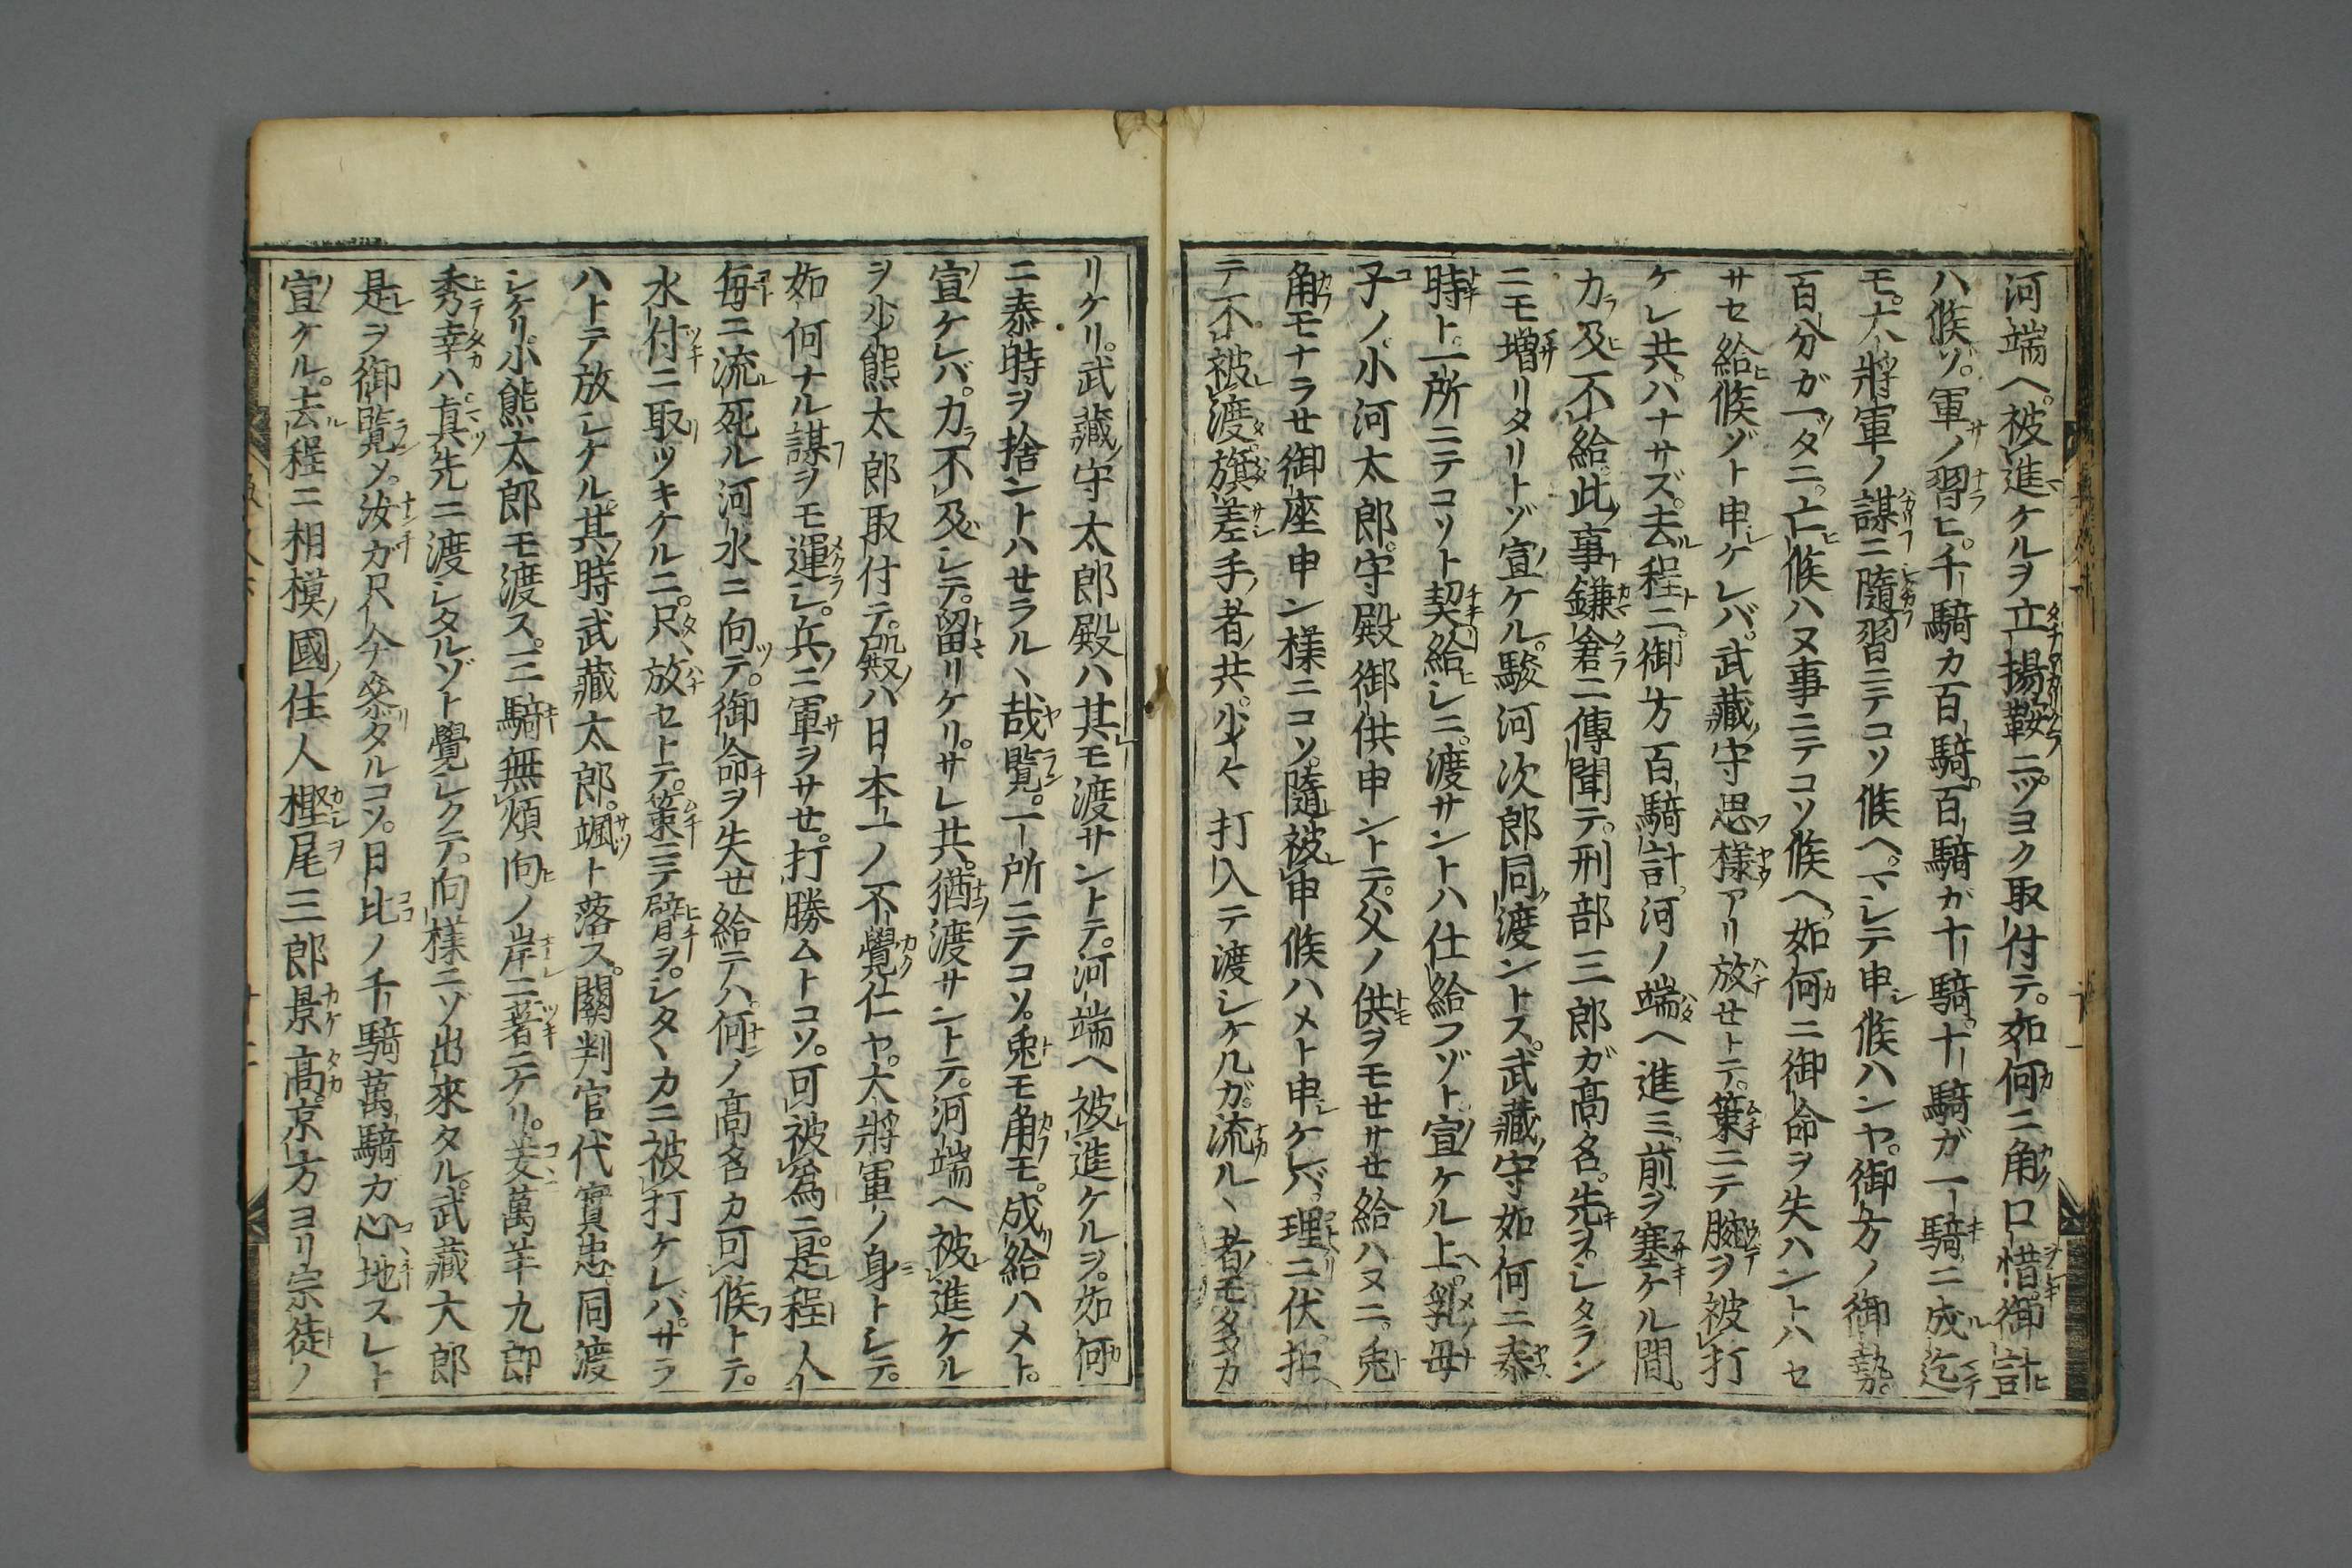 河端ヘ。被進ケルヲ立揚鞍ニツヨク取付テ。如何ニ角口惜。御計
ハ候ソ。軍ノ習ヒ。千騎カ百騎。百騎ガ十騎。十騎ガ一騎ニ成迄
モ。大將軍ノ謀ニ隨習ニテコソ候ヘ。マシテ申候ハンヤ。御方ノ御勢。
百分ガ一タニ。亡候ハヌ事ニテコソ候ヘ。如何ニ御命ヲ失ハントハセ
サセ給候ゾト申ケレバ。武藏守思樣アリ放セトテ。策ニテ腕ヲ被打
ケレ共。ハナサズ。去程ニ。御方百騎計。河ノ端ヘ進ミ。前ヲ塞ケル間。
力及不給。此事鎌倉ニ傳聞テ。刑部三郎ガ高名。先ヲシタラン
ニモ増リタリトゾ宣ケル。駿河次郎同渡ントス。武藏守如何ニ泰
時ト。一所ニテコソト契給シニ。渡サントハ仕給フゾト。宣ケル上。乳母
子ノ。小河太郎。守殿御供申ントテ。父ノ供ヲモセサセ給ハヌニ。兎
角モナラセ御座申ン樣ニコソ。隨被申候ハメト申ケレバ。理ニ伏
テ不被渡。旗差手ノ者共。少々打入テ渡シケルガ。流ルヽ者モ多カ
リケリ。武藏守太郎殿ハ其モ渡サントテ。河端ヘ被進ケルヲ。如何
ニ泰時ヲ捨ントハセラルヽ哉覽。一所ニテコソ。兎モ角モ。成給ハメト。
宣ケレバ。力不及シテ。留リケリ。サレ共。猶渡サントテ。河端ヘ被進ケル
ヲ。小熊太郎取付テ。殿ハ日本一ノ不覺仁ヤ。大將軍ノ身トシテ。
如何ナル謀ヲモ運シ。兵ニ軍ヲサセ。打勝ムトコソ。可被爲ニ。是程人
毎ニ流死ル河水ニ向テ。御命ヲ失セ給テハ。何ノ高名カ可候トテ。
水付ニ取ツキケルニ。只放セトテ。策ニテ臂ヲ。シタヽカニ被打ケレバ。サラ
ハトテ放シケル。其時武藏太郎。颯ト落ス。關判官代實忠同渡
シケリ。小熊太郎モ渡ス。三騎無煩向ノ岸ニ著ニケリ。爰萬年九郎
秀幸ハ。真先ニ渡シタルゾト覺シクテ。向樣ニゾ出來タル。武藏太郎
是ヲ御覽ソ。汝ガ只今參タルコソ。日比ノ千騎萬騎カ心地スレト
宣ケル。去程ニ相模國住人樫尾三郎景高。京方ヨリ宗徒ノ